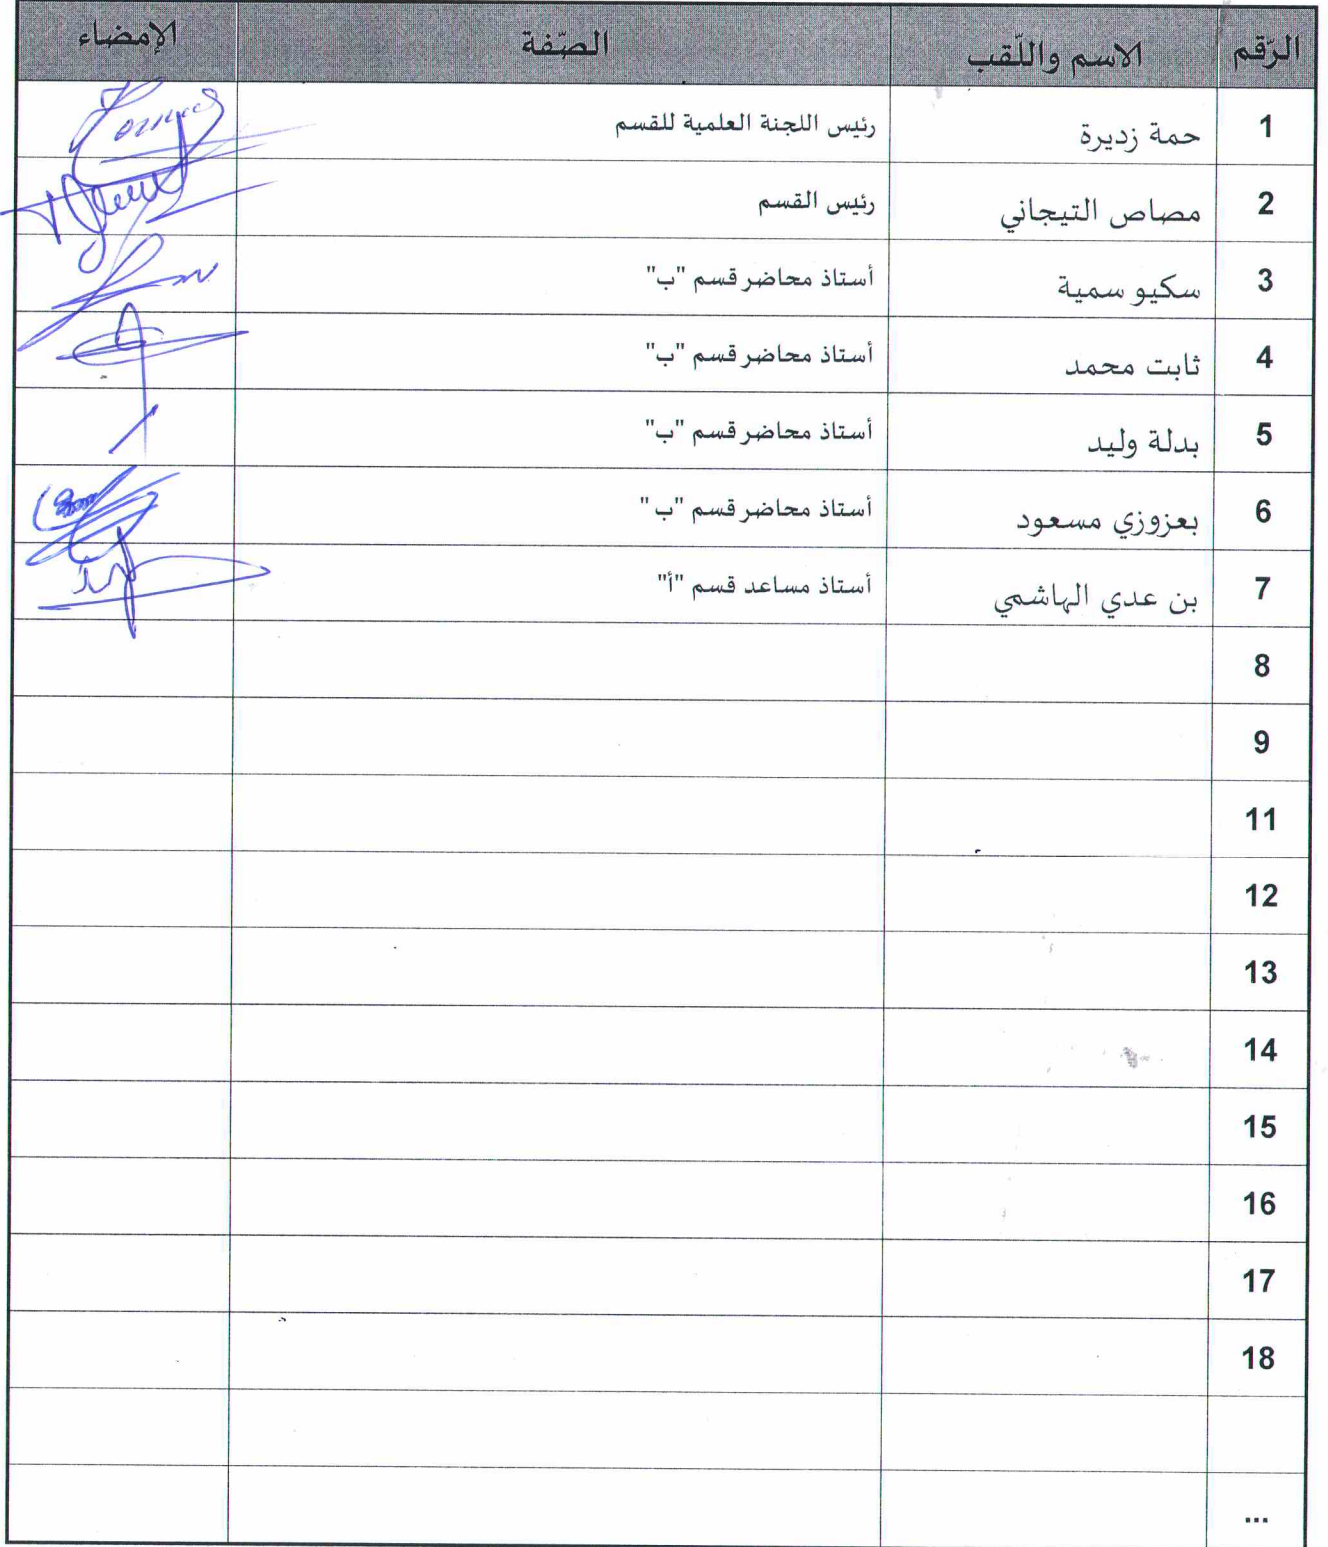 الرّقم الاسم واللّقب الصّفة الإمضاء
1 حمة زديرة رئيس اللجنة العلمية للقسم
2 مصاص التيجاني رئيس القسم
3 سكيو سمية أستاذ محاضر قسم "ب"
4 ثابت محمد أستاذ محاضر قسم "ب"
5 بدلة وليد أستاذ محاضر قسم "ب"
6 بعزوزي مسعود أستاذ محاضر قسم "ب"
7 بن عدي الهاشمي أستاذ مساعد قسم "أ"
8
9
11
12
13
14
15
16
17
18
...